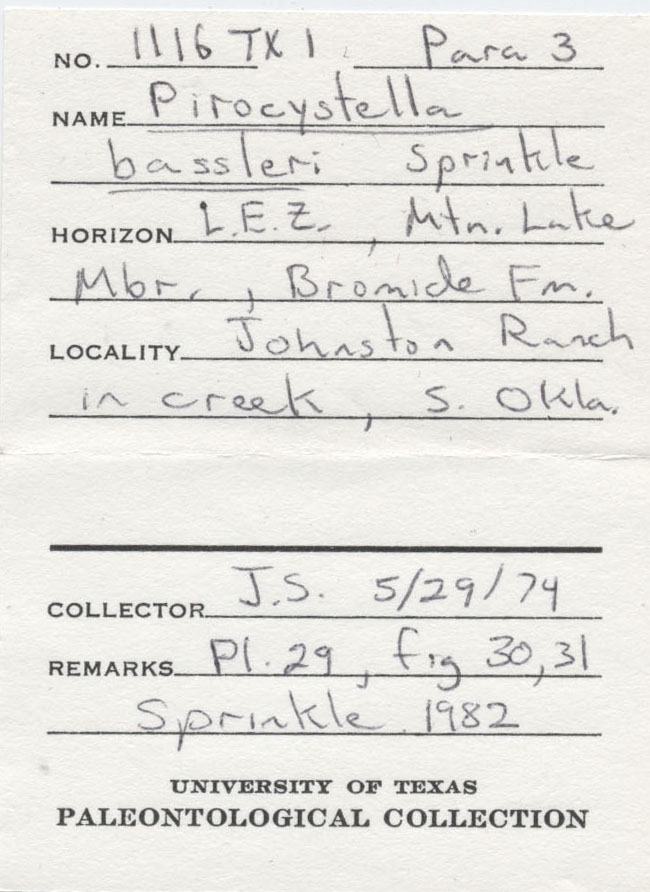 NO. 1116 TX 1 Para 3
NAME Pirocystella
bassleri Sprinkle
HORIZON L.E.Z., Mtn. Lake
Mbr., Bromide Fm.
LOCALITY Johnston Ranch
in creek, S. Okla.
COLLECTOR J.S. 5/29/74
REMARKS Pl. 29, fig 30,31
Sprinkle 1982
UNIVERSITY OF TEXAS
PALEONTOLOGICAL COLLECTION